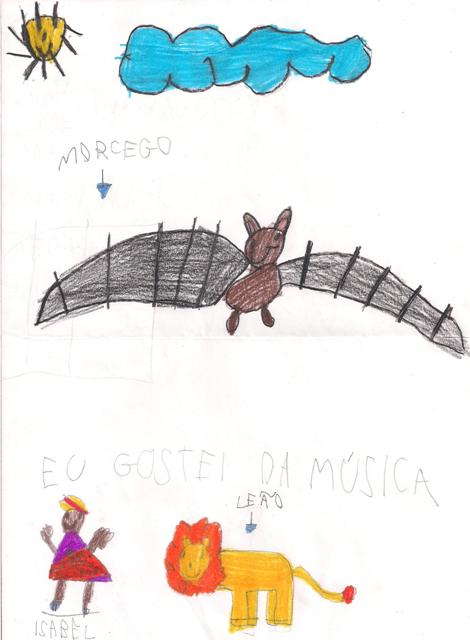 MORCEGO
EU GOSTEI DA MÚSICA
LEÃO
ISABEL